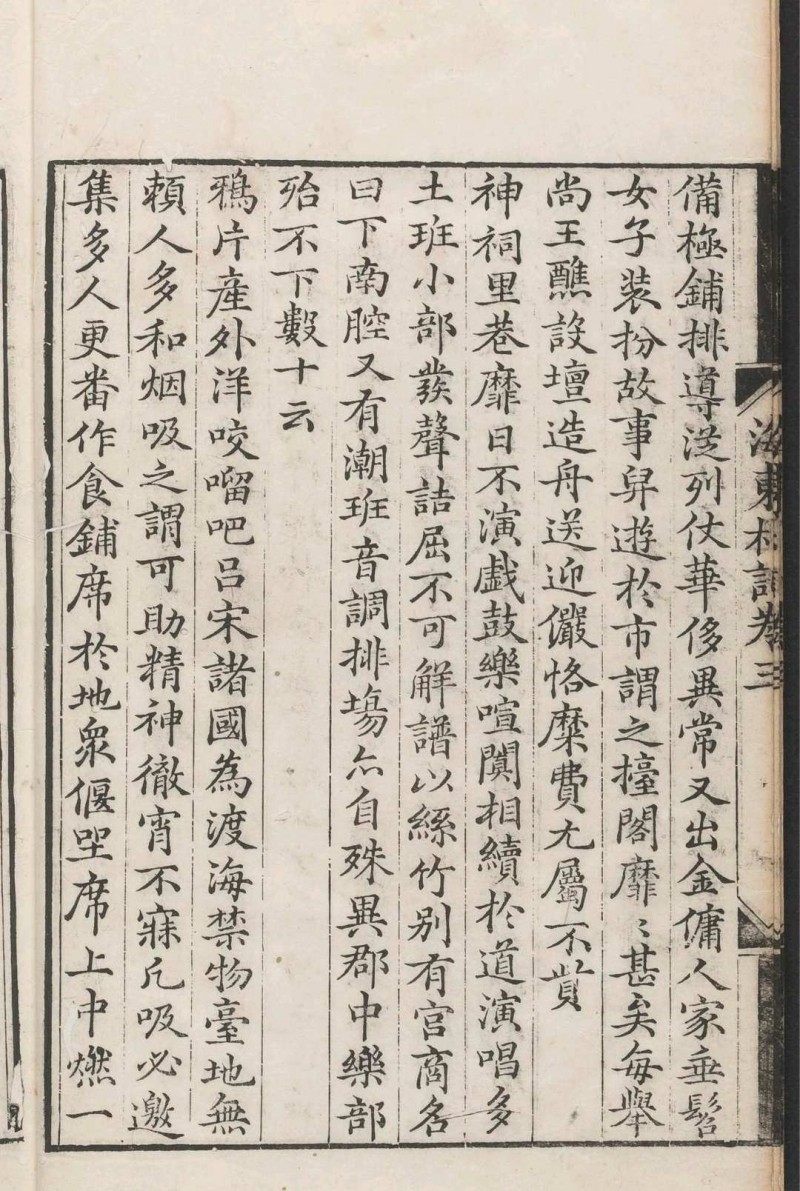 海東札記卷三
備極鋪排導從列仗華侈異常又出金傭人家垂髫
女子裝扮故事舁遊於市謂之擡閣靡〻甚矣每舉
尚王醮設壇造舟送迎儼恪糜費尤屬不貲
神祠里巷靡日不演戲鼓樂喧闐相續於道演唱多
土班小部發聲詰屈不可解譜以絲竹别有宮商名
曰下南腔又有潮班音調排塲亦自殊異郡中樂部
殆不下數十云
鴉片産外洋咬𠺕吧吕宋諸國為渡海禁物臺地無
賴人多和烟吸之謂可助精神徹宵不寐凡吸必邀
集多人更番作食鋪席於地衆偃坐席上中燃一